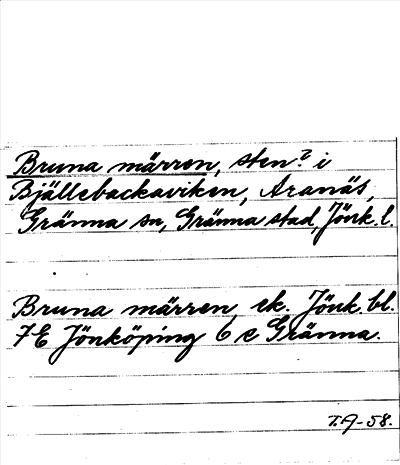 Bruna märren, sten? i
Bjällebackaviken, Aranäs,
Gränna sn, Gränna stad, Jönk. l.
Bruna märren ek. Jönk. bl.
7E Jönköping 6 e Gränna.
T.A-58.